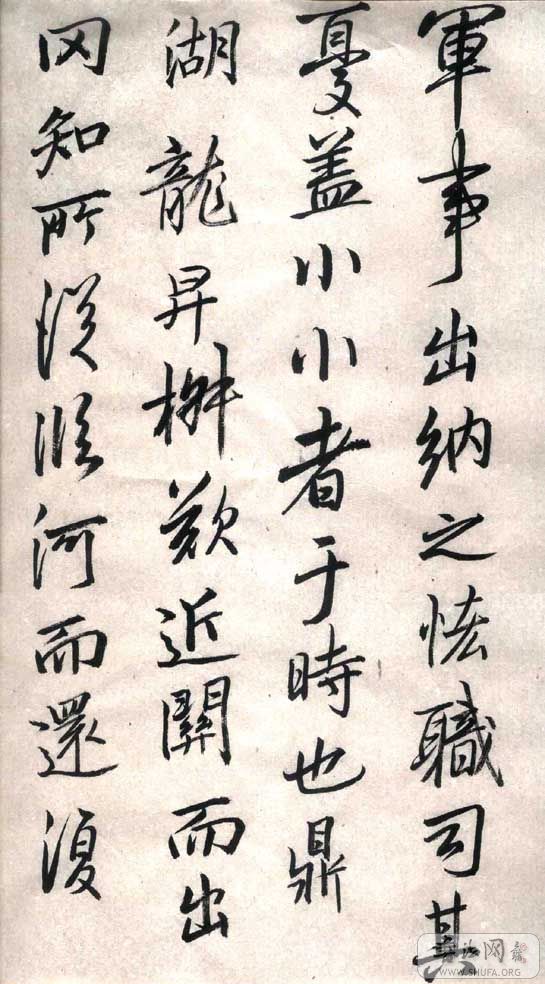 軍事出納之恡職司其
憂盖小小者于時也鼎
湖龍昇栟欵近關而出
罔知所從順河而還復
书法网
WWW.SHUFA.ORG